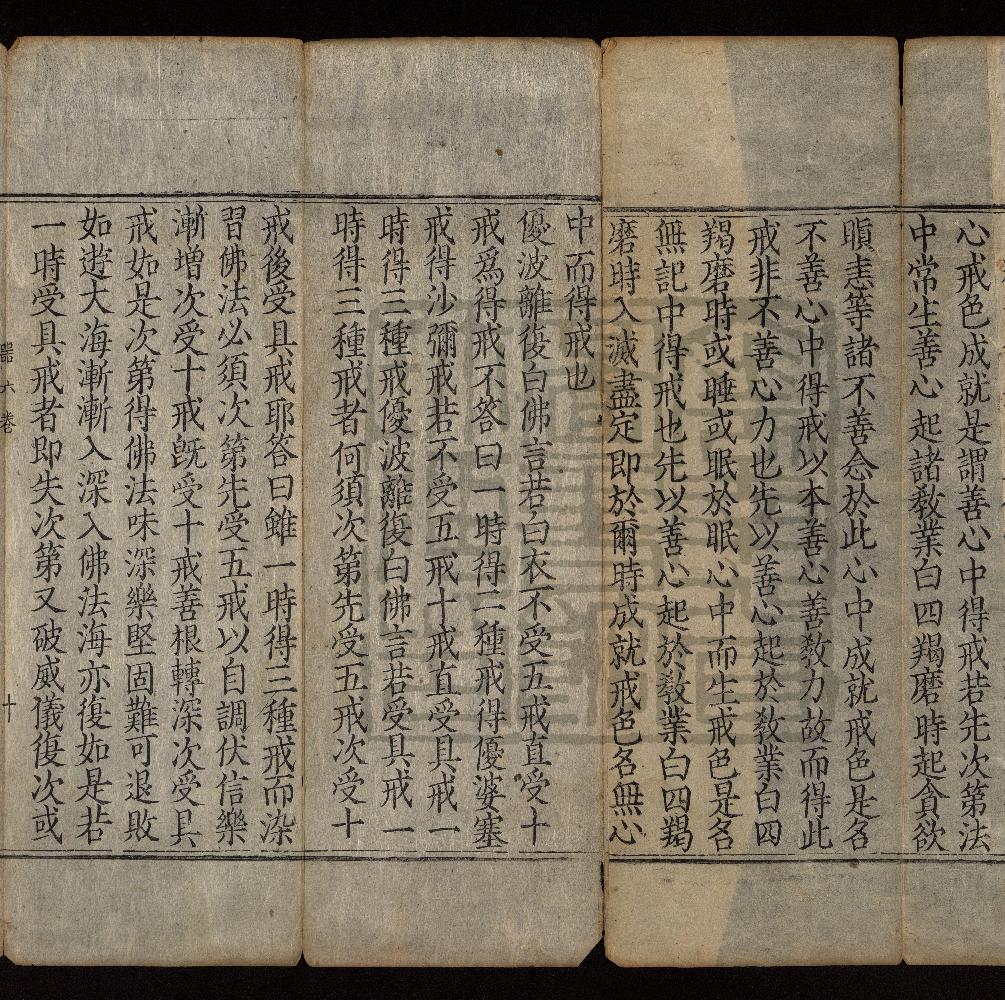 心戒色成就是謂善心中得戒若先次第法
中常生善心起諸教業白四羯磨時起貪欲
瞋恚等諸不善念於此心中成就戒色是名
不善心中得戒以本善心善教力故而得此
戒非不善心力也先以善心起於教業白四
羯磨時或睡或眠於眠心中而生戒色是名
無記中得戒也先以善心起於教業白四羯
磨時入滅盡定即於爾時成就戒色名無心
中而得戒也
優波離復白佛言若白衣不受五戒直受十
戒為得戒不答曰一時得二種戒得優婆塞
戒得沙彌戒若不受五戒十戒直受具戒一
時得三種戒優波離復白佛言若受具戒一
時得三種戒者何須次第先受五戒次受十
戒後受具戒耶答曰雖一時得三種戒而染
習佛法必須次第先受五戒以自調伏信樂
漸增次受十戒旣受十戒善根轉深次受具
戒如是次第得佛法味深樂堅固難可退敗
如遊大海漸漸入深入佛法海亦復如是若
一時受具戒者即失次第又破威儀復次或
六卷
十